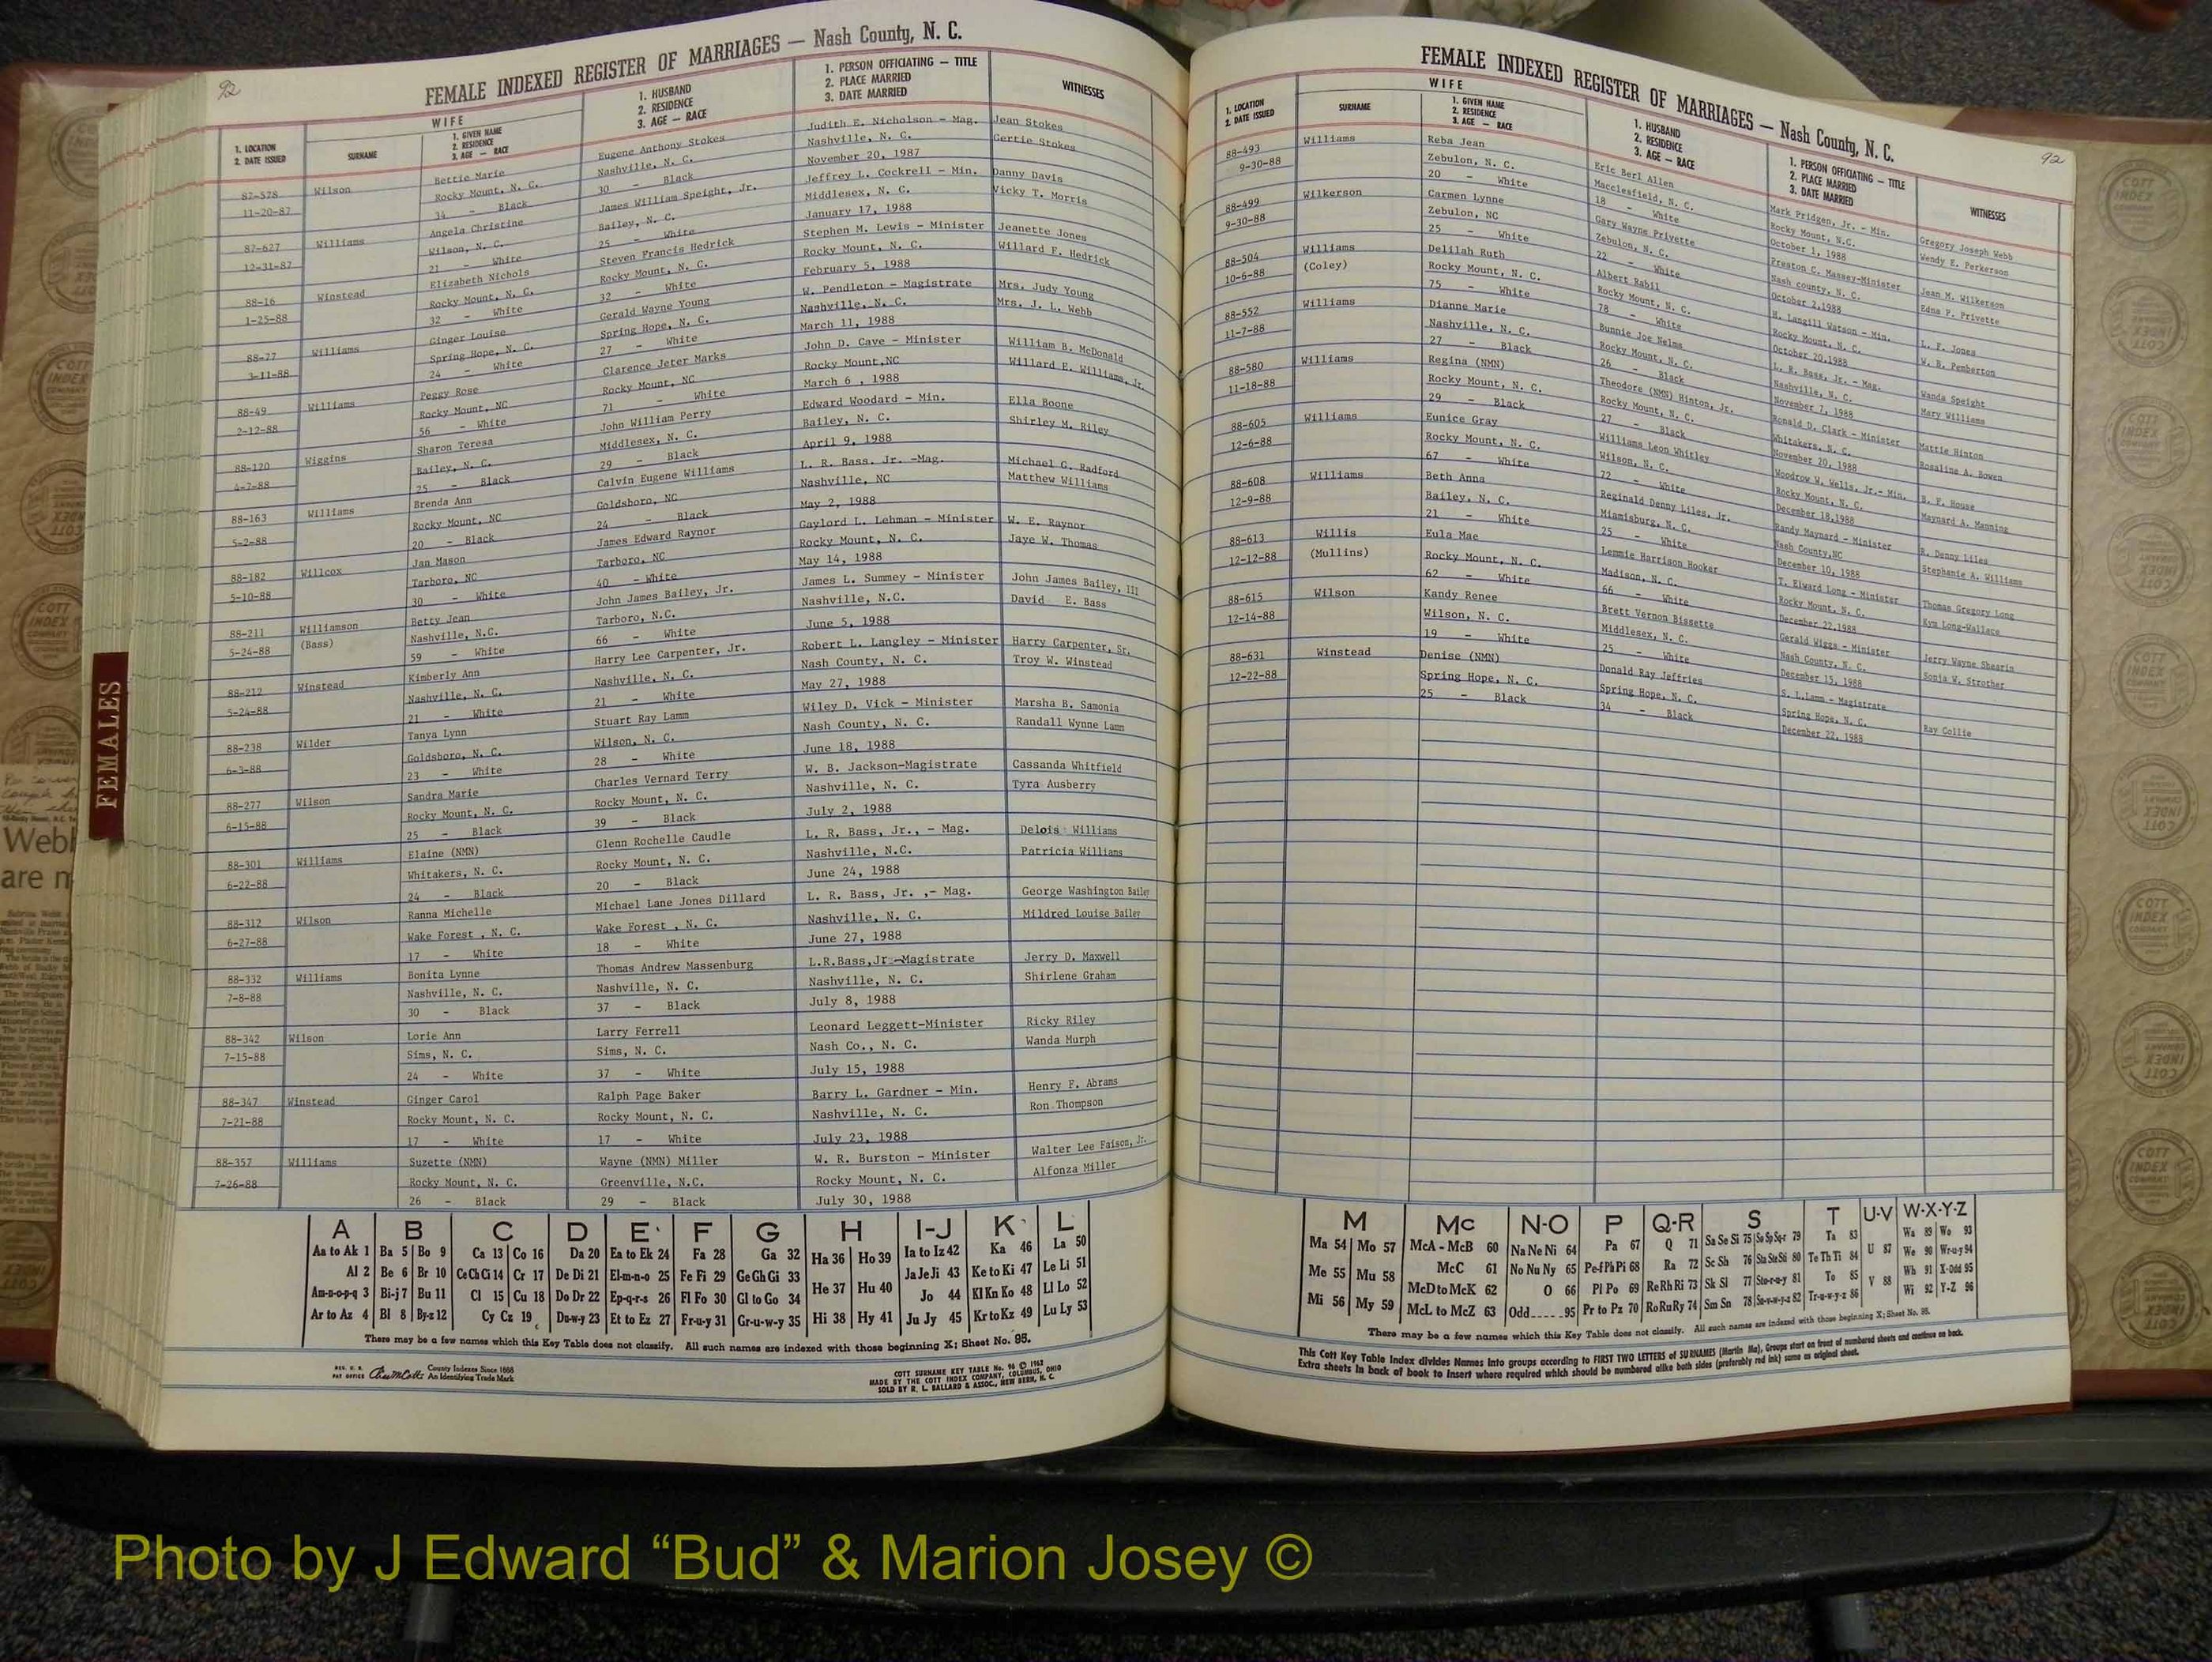 92
FEMALE INDEXED REGISTER OF MARRIAGES — Nash County, N. C.
1. LOCATION
2. DATE ISSUED
WIFE
SURNAME
1. GIVEN NAME
2. RESIDENCE
3. AGE — RACE
1. HUSBAND
2. RESIDENCE
3. AGE — RACE
1. PERSON OFFICIATING — TITLE
2. PLACE MARRIED
3. DATE MARRIED
WITNESSES
87-578 Wilson Bettie Marie Eugene Anthony Stokes Judith E. Nicholson - Mag. Jean Stokes
11-20-87 Rocky Mount, N. C. Nashville, N. C. Nashville, N. C. Gertie Stokes
34 - Black 30 - Black November 20, 1987
87-627 Williams Angela Christine James William Speight, Jr. Jeffrey L. Cockrell - Min. Danny Davis
12-31-87 Wilson, N. C. Bailey, N. C. Middlesex, N. C. Vicky T. Morris
21 - White 25 - White January 17, 1988
88-16 Winstead Elizabeth Nichols Steven Francis Hedrick Stephen M. Lewis - Minister Jeanette Jones
1-25-88 Rocky Mount, N. C. Rocky Mount, N. C. Rocky Mount, N. C. Willard F. Hedrick
32 - White 32 - White February 5, 1988
88-77 Williams Ginger Louise Gerald Wayne Young W. Pendleton - Magistrate Mrs. Judy Young
3-11-88 Spring Hope, N. C. Spring Hope, N. C. Nashville, N. C. Mrs. J. L. Webb
24 - White 27 - White March 11, 1988
88-49 Williams Peggy Rose Clarence Jeter Marks John D. Cave - Minister William B. McDonald
2-12-88 Rocky Mount, NC Rocky Mount, NC Rocky Mount,NC Willard E. Williams, Jr.
56 - White 71 - White March 6 , 1988
88-120 Wiggins Sharon Teresa John William Perry Edward Woodard - Min. Ella Boone
4-7-88 Bailey, N. C. Middlesex, N. C. Bailey, N. C. Shirley M. Riley
25 - Black 29 - Black April 9, 1988
88-163 Williams Brenda Ann Calvin Eugene Williams L. R. Bass, Jr. -Mag. Michael G. Radford
5-2-88 Rocky Mount, NC Goldsboro, NC Nashville, NC Matthew Williams
20 - Black 24 - Black May 2, 1988
88-182 Willcox Jan Mason James Edward Raynor Gaylord L. Lehman - Minister W. E. Raynor
5-10-88 Tarboro, NC Tarboro, NC Rocky Mount, N. C. Jaye W. Thomas
30 - White 40 - White May 14, 1988
88-211 Williamson Betty Jean John James Bailey, Jr. James L. Summey - Minister John James Bailey, III
5-24-88 (Bass) Nashville, N.C. Tarboro, N.C. Nashville, N.C. David E. Bass
59 - White 66 - White June 5, 1988
88-212 Winstead Kimberly Ann Harry Lee Carpenter, Jr. Robert L. Langley - Minister Harry Carpenter, Sr.
5-24-88 Nashville, N. C. Nashville, N. C. Nash County, N. C. Troy W. Winstead
21 - White 21 - White May 27, 1988
88-238 Wilder Tanya Lynn Stuart Ray Lamm Wiley D. Vick - Minister Marsha B. Samonia
6-3-88 Goldsboro, N. C. Wilson, N. C. Nash County, N. C. Randall Wynne Lamm
23 - White 28 - White June 18, 1988
88-277 Wilson Sandra Marie Charles Vernard Terry W. B. Jackson-Magistrate Cassanda Whitfield
6-15-88 Rocky Mount, N. C. Rocky Mount, N. C. Nashville, N. C. Tyra Ausberry
25 - Black 39 - Black July 2, 1988
88-301 Williams Elaine (NMN) Glenn Rochelle Caudle L. R. Bass, Jr., - Mag. Delois Williams
6-22-88 Whitakers, N. C. Rocky Mount, N. C. Nashville, N.C. Patricia Williams
24 - Black 20 - Black June 24, 1988
88-312 Wilson Ranna Michelle Michael Lane Jones Dillard L. R. Bass, Jr. ,- Mag. George Washington Bailey
6-27-88 Wake Forest , N. C. Wake Forest , N. C. Nashville, N. C. Mildred Louise Bailey
17 - White 18 - White June 27, 1988
88-332 Williams Bonita Lynne Thomas Andrew Massenburg L.R.Bass,Jr-Magistrate Jerry D. Maxwell
7-8-88 Nashville, N. C. Nashville, N. C. Nashville, N. C. Shirlene Graham
30 - Black 37 - Black July 8, 1988
88-342 Wilson Lorie Ann Larry Ferrell Leonard Leggett-Minister Ricky Riley
7-15-88 Sims, N. C. Sims, N. C. Nash Co., N. C. Wanda Murph
24 - White 37 - White July 15, 1988
88-347 Winstead Ginger Carol Ralph Page Baker Barry L. Gardner - Min. Henry F. Abrams
7-21-88 Rocky Mount, N. C. Rocky Mount, N. C. Nashville, N. C. Ron Thompson
17 - White 17 - White July 23, 1988
88-357 Williams Suzette (NMN) Wayne (NMN) Miller W. R. Burston - Minister Walter Lee Faison, Jr.
7-26-88 Rocky Mount, N. C. Greenville, N.C. Rocky Mount, N. C. Alfonza Miller
26 - Black 29 - Black July 30, 1988
A B C D E F G H I-J K L
Aa to Ak 1 Ba 5 Bo 9 Ca 13 Co 16 Da 20 Ea to Ek 24 Fa 28 Ga 32 Ha 36 Ho 39 Ia to Iz 42 Ka 46 La 50
Al 2 Be 6 Br 10 Ce Ch Ci 14 Cr 17 De Di 21 El-m-n-o 25 Fe Fi 29 Ge Gh Gi 33 He 37 Hu 40 Ja Je Ji 43 Ke to Ki 47 Le Li 51
Am-n-o-p-q 3 Bi-j 7 Bu 11 Cl 15 Cu 18 Do Dr 22 Ep-q-r-s 26 Fl Fo 30 Gl to Go 34 Hi 38 Hy 41 Jo 44 Kl Kn Ko 48 Ll Lo 52
Ar to Az 4 Bl 8 By-z 12 Cy Cz 19 Du-w-y 23 Et to Ez 27 Fr-u-y 31 Gr-u-w-y 35 Ju Jy 45 Kr to Kz 49 Lu Ly 53
There may be a few names which this Key Table does not classify. All such names are indexed with those beginning X; Sheet No. 95.
REG. U. S. PAT OFFICE
County Indexes Since 1888
An Identifying Trade Mark
COTT SURNAME KEY TABLE No. 96 © 1962
MADE BY THE COTT INDEX COMPANY, COLUMBUS, OHIO
SOLD BY R. L. BALLARD & ASSOC., NEW BERN, N. C.
FEMALES
FEMALE INDEXED REGISTER OF MARRIAGES — Nash County, N. C.
92
1. LOCATION
2. DATE ISSUED
WIFE
SURNAME
1. GIVEN NAME
2. RESIDENCE
3. AGE — RACE
1. HUSBAND
2. RESIDENCE
3. AGE — RACE
1. PERSON OFFICIATING — TITLE
2. PLACE MARRIED
3. DATE MARRIED
WITNESSES
88-493 Williams Reba Jean Eric Berl Allen Mark Pridgen, Jr. - Min. Gregory Joseph Webb
9-30-88 Zebulon, N. C. Macclesfield, N. C. Rocky Mount, N.C. Wendy E. Perkerson
20 - White 18 - White October 1, 1988
88-499 Wilkerson Carmen Lynne Gary Wayne Privette Preston C. Massey-Minister Jean M. Wilkerson
9-30-88 Zebulon, NC Zebulon, N. C. Nash county, N. C. Edna P. Privette
25 - White 22 - White October 2,1988
88-504 Williams Delilah Ruth Albert Rabil H. Langill Watson - Min. L. F. Jones
10-6-88 (Coley) Rocky Mount, N. C. Rocky Mount, N. C. Rocky Mount, N. C. W. R. Pemberton
75 - White 78 - White October 20,1988
88-552 Williams Dianne Marie Bunnie Joe Nelms L. R. Bass, Jr. - Mag. Wanda Speight
11-7-88 Nashville, N. C. Rocky Mount, N. C. Nashville, N. C. Mary Williams
27 - Black 26 - Black November 7, 1988
88-580 Williams Regina (NMN) Theodore (NMN) Hinton, Jr. Ronald D. Clark - Minister Mattie Hinton
11-18-88 Rocky Mount, N. C. Rocky Mount, N. C. Whitakers, N. C. Rosaline A. Bowen
29 - Black 27 - Black November 20, 1988
88-605 Williams Eunice Gray Williams Leon Whitley Woodrow W. Wells, Jr.- Min. B. F. House
12-6-88 Rocky Mount, N. C. Wilson, N. C. Rocky Mount, N. C. Maynard A. Manning
67 - White 72 - White December 18,1988
88-608 Williams Beth Anna Reginald Denny Liles, Jr. Randy Maynard - Minister R. Denny Liles
12-9-88 Bailey, N. C. Miamisburg, N. C. Nash County,NC Stephanie A. Williams
21 - White 25 - White December 10, 1988
88-613 Willis Eula Mae Lemmie Harrison Hooker T. Elward Long - Minister Thomas Gregory Long
12-12-88 (Mullins) Rocky Mount, N. C. Madison, N. C. Rocky Mount, N. C. Kym Long-Wallace
62 - White 66 - White December 22,1988
88-615 Wilson Kandy Renee Brett Vernon Bissette Gerald Wiggs - Minister Jerry Wayne Shearin
12-14-88 Wilson, N. C. Middlesex, N. C. Nash County, N. C. Sonja W. Strother
19 - White 25 - White December 15, 1988
88-631 Winstead Denise (NMN) Donald Ray Jeffries S. L.Lamm - Magistrate Ray Collie
12-22-88 Spring Hope, N. C. Spring Hope, N. C. Spring Hope, N. C.
25 - Black 34 - Black December 22, 1988
M Mc N-O P Q-R S T U-V W-X-Y-Z
Ma 54 Mo 57 McA - McB 60 Na Ne Ni 64 Pa 67 Q 71 Sa Se Si 75 So Sp Sq-r 79 Ta 83 U 87 Wa 89 Wo 93
Me 55 Mu 58 McC 61 No Nu Ny 65 Pe-f Ph Pi 68 Ra 72 Sc Sh 76 Sta Ste Sti 80 Te Th Ti 84 V 88 We 90 Wr-u-y 94
Mi 56 My 59 McD to McK 62 O 66 Pl Po 69 Re Rh Ri 73 Sk Sl 77 Sto-r-u-y 81 To 85 Wh 91 X-Odd 95
McL to McZ 63 Odd 95 Pr to Pz 70 Ro Ru Ry 74 Sm Sn 78 Su-v-w-y-z 82 Tr-u-w-y-z 86 Wi 92 Y-Z 96
There may be a few names which this Key Table does not classify. All such names are indexed with those beginning X; Sheet No. 95.
This Cott Key Table Index divides Names into groups according to FIRST TWO LETTERS of SURNAMES (Martin Ma). Groups start on front of numbered sheets and continue on back.
Extra sheets in back of book to insert where required which should be numbered alike both sides (preferably red ink) same as original sheet.
Photo by J Edward “Bud” & Marion Josey ©